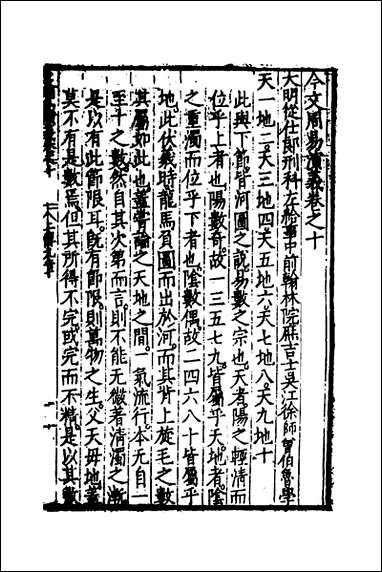 今文周易演義卷之十
大明從仕郎刑科左給事中前翰林院庶吉士吳江徐師曾伯魯學
天一地二天三地四天五地六天七地八天九地十
此與下節皆河圖之說易數之宗也天者陽之輕清而
位乎上者也陽數奇故一三五七九皆屬乎天地者陰
之重濁而位乎下者也陰數偶故二四六八十皆屬乎
地此伏羲時龍馬負圖而出於河而其背上旋毛之數
其屬如此也蓋嘗論之天地之間一氣流行本无自一
至十之數然自其次第而言則不能无微著清濁之漸
是以有此節限耳既有節限則萬物之生父天母地蓋
莫不有是數焉但其所得不完或完而不精是以其數